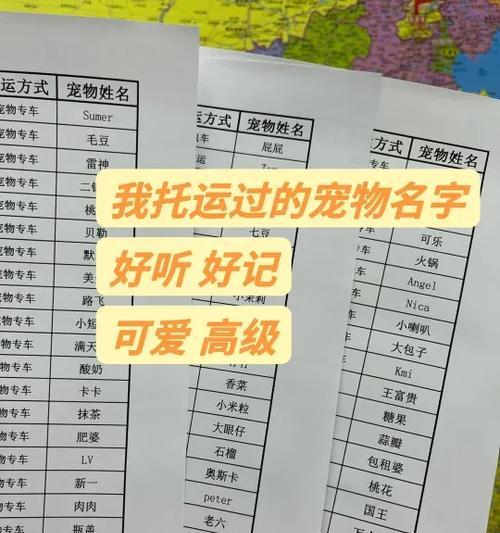 运方式 宠物姓名
宠物专车 Sumer
宠物专车 毛豆
宠物专车 雷神
宠物专车
宠物专车
宠物专车 贝勒
宠物专车
宠物专车
宠物专车 路飞
宠物专车
宠物专车
宠物专车 酸奶
宠物专车 卡卡
宠物专车 抹茶
宠物专车 肥婆
宠物专车 LV
宠物专车 新一
宠物专车 肉肉
宠物专车 瓶盖
方式 宠物姓名
屁屁
七豆
小米莉
香菜
小米粒
大眼仔
石榴
奥斯卡
peter
老六
方式 宠物姓名
可乐
火锅
Angel
Nica
小喇叭
大包子
Kmi
王富贵
糖果
蒜瓣
包租婆
桃花
国王
我托运过的宠物名字
好听 好记
可爱 高级